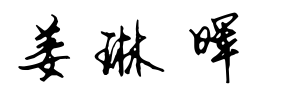 姜琳晖